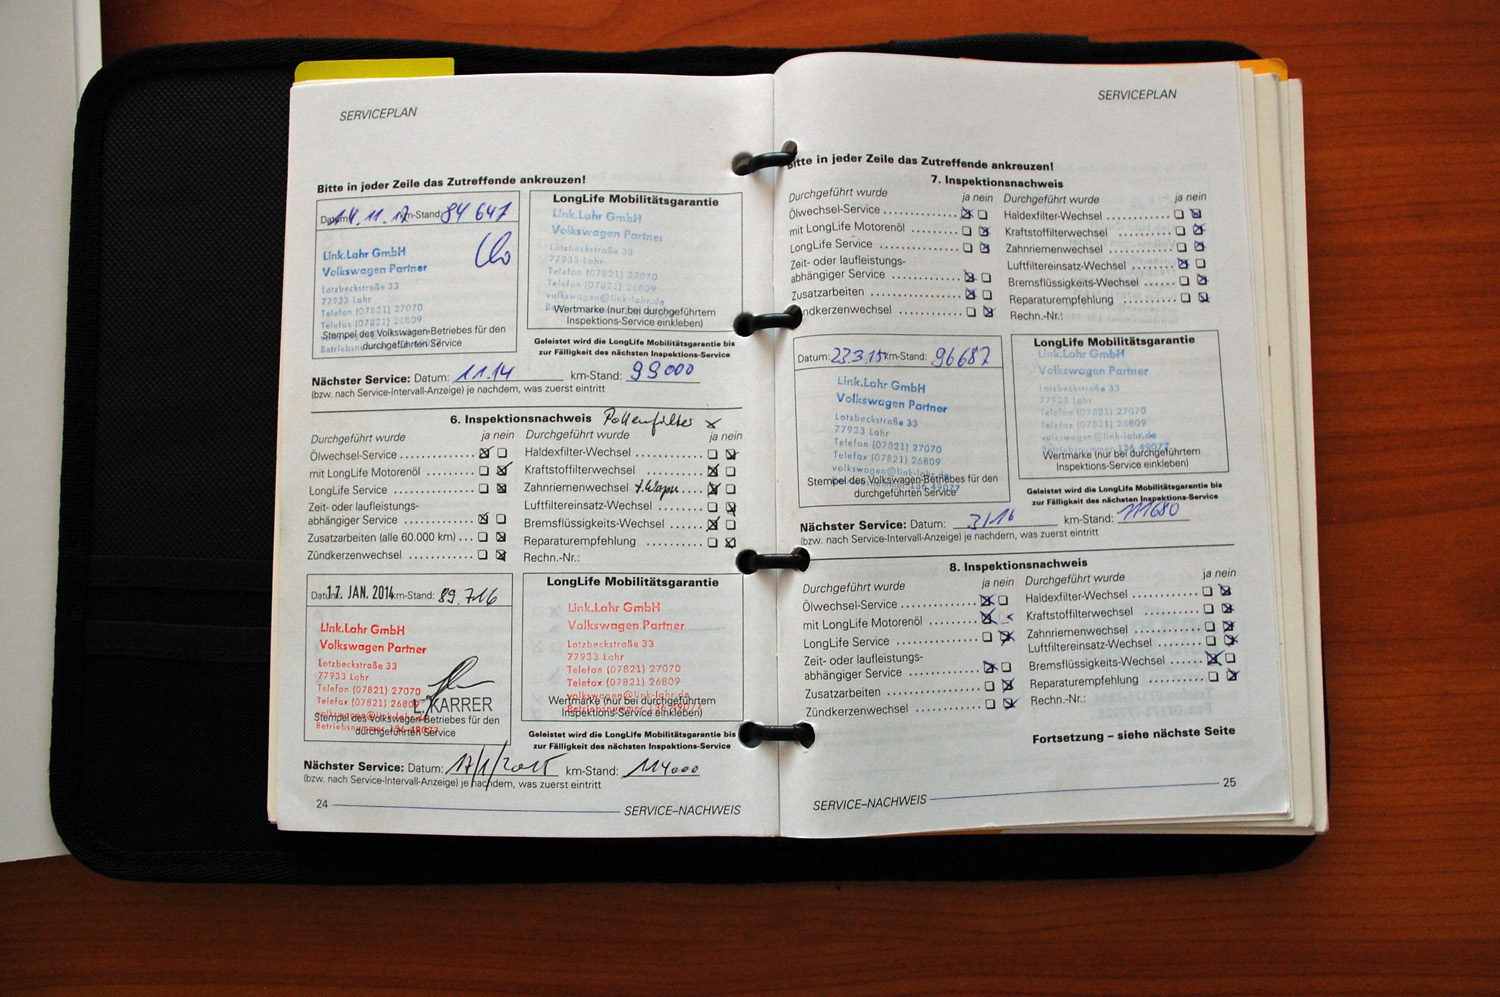 SERVICEPLAN
Bitte in jeder Zeile das Zutreffende ankreuzen!
Datum: 14.11.12 km-Stand: 84 647
Link.Lahr GmbH
Volkswagen Partner
Lotzbeckstraße 33
77933 Lahr
Telefon (07821) 27070
Telefax (07821) 26809
Stempel des Volkswagen-Betriebes für den
durchgeführten Service
LongLife Mobilitätsgarantie
Link.Lahr GmbH
Volkswagen Partner
Lotzbeckstraße 33
77933 Lahr
Telefon (07821) 27070
Telefax (07821) 26809
volkswagen@link-lahr.de
Wertmarke (nur bei durchgeführtem
Inspektions-Service einkleben)
Geleistet wird die LongLife Mobilitätsgarantie bis
zur Fälligkeit des nächsten Inspektions-Service
Nächster Service: Datum: 11.14 km-Stand: 99000
(bzw. nach Service-Intervall-Anzeige) je nachdem, was zuerst eintritt
6. Inspektionsnachweis Pollenfilter x
Durchgeführt wurde ja nein
Ölwechsel-Service
mit LongLife Motorenöl
LongLife Service
Zeit- oder laufleistungs-
abhängiger Service
Zusatzarbeiten (alle 60.000 km)
Zündkerzenwechsel
Durchgeführt wurde ja nein
Haldexfilter-Wechsel
Kraftstoffilterwechsel
Zahnriemenwechsel
Luftfiltereinsatz-Wechsel
Bremsflüssigkeits-Wechsel
Reparaturempfehlung
Rechn.-Nr.:
Datum: 17. JAN. 2014 km-Stand: 89.716
Link.Lahr GmbH
Volkswagen Partner
Lotzbeckstraße 33
77933 Lahr
Telefon (07821) 27070
Telefax (07821) 26809
L. KARRER
volkswagen@link-lahr.de
Stempel des Volkswagen-Betriebes für den
Betriebsnummer 136 49077
durchgeführten Service
LongLife Mobilitätsgarantie
Link.Lahr GmbH
Volkswagen Partner
Lotzbeckstraße 33
77933 Lahr
Telefon (07821) 27070
Telefax (07821) 26809
volkswagen@link-lahr.de
Wertmarke (nur bei durchgeführtem
Betriebsnummer 136 49077
Inspektions-Service einkleben)
Geleistet wird die LongLife Mobilitätsgarantie bis
zur Fälligkeit des nächsten Inspektions-Service
Nächster Service: Datum: 17/1/2015 km-Stand: 114000
(bzw. nach Service-Intervall-Anzeige) je nachdem, was zuerst eintritt
24 SERVICE–NACHWEIS
SERVICEPLAN
Bitte in jeder Zeile das Zutreffende ankreuzen!
7. Inspektionsnachweis
Durchgeführt wurde ja nein
Ölwechsel-Service
mit LongLife Motorenöl
LongLife Service
Zeit- oder laufleistungs-
abhängiger Service
Zusatzarbeiten
Zündkerzenwechsel
Durchgeführt wurde ja nein
Haldexfilter-Wechsel
Kraftstoffilterwechsel
Zahnriemenwechsel
Luftfiltereinsatz-Wechsel
Bremsflüssigkeits-Wechsel
Reparaturempfehlung
Rechn.-Nr.:
Datum: 23.3.15 km-Stand: 96687
Link.Lahr GmbH
Volkswagen Partner
Lotzbeckstraße 33
77933 Lahr
Telefon (07821) 27070
Telefax (07821) 26809
volkswagen@link-lahr.de
Stempel des Volkswagen-Betriebes für den
durchgeführten Service
LongLife Mobilitätsgarantie
Link.Lahr GmbH
Volkswagen Partner
Lotzbeckstraße 33
77933 Lahr
Telefon (07821) 27070
Telefax (07821) 26809
volkswagen@link-lahr.de
Wertmarke (nur bei durchgeführtem
Inspektions-Service einkleben)
Geleistet wird die LongLife Mobilitätsgarantie bis
zur Fälligkeit des nächsten Inspektions-Service
Nächster Service: Datum: 3/16 km-Stand: 111680
(bzw. nach Service-Intervall-Anzeige) je nachdem, was zuerst eintritt
8. Inspektionsnachweis
Durchgeführt wurde ja nein
Ölwechsel-Service
mit LongLife Motorenöl
LongLife Service
Zeit- oder laufleistungs-
abhängiger Service
Zusatzarbeiten
Zündkerzenwechsel
Durchgeführt wurde ja nein
Haldexfilter-Wechsel
Kraftstoffilterwechsel
Zahnriemenwechsel
Luftfiltereinsatz-Wechsel
Bremsflüssigkeits-Wechsel
Reparaturempfehlung
Rechn.-Nr.:
Fortsetzung – siehe nächste Seite
SERVICE–NACHWEIS 25